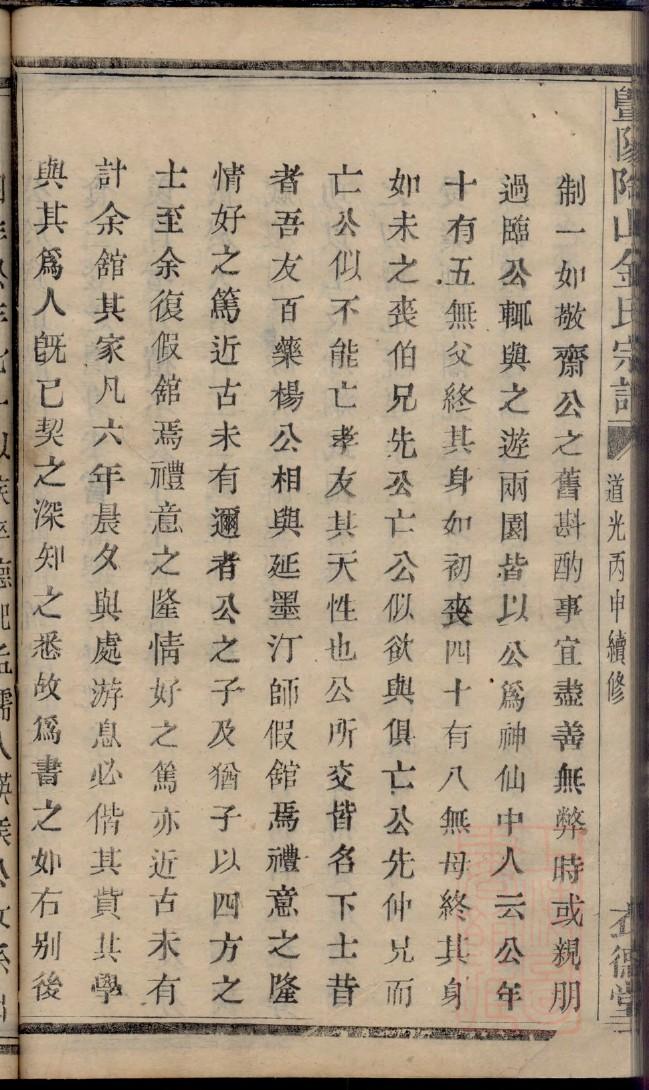 暨陽陶山金氏宗譜
道光丙申續修
德堂
制一如敬齋公之舊斟酌事宜盡善無弊時或親朋
過臨公輒與之遊兩園皆以公爲神仙中人云公年
十有五無父終其身如初喪四十有八無母終其身
如未之喪伯兄先公亡公似欲與俱亡公先仲兄而
亡公似不能亡孝友其天性也公所交皆名下士昔
者吾友百藥楊公相與延墨汀師假舘焉禮意之隆
情好之篤近古未有邇者公之子及猶子以四方之
士至余復假舘焉禮意之隆情好之篤亦近古未有
計余舘其家凡六年晨夕與處游息必偕其賢其學
與其爲人旣已契之深知之悉故爲書之如右别後